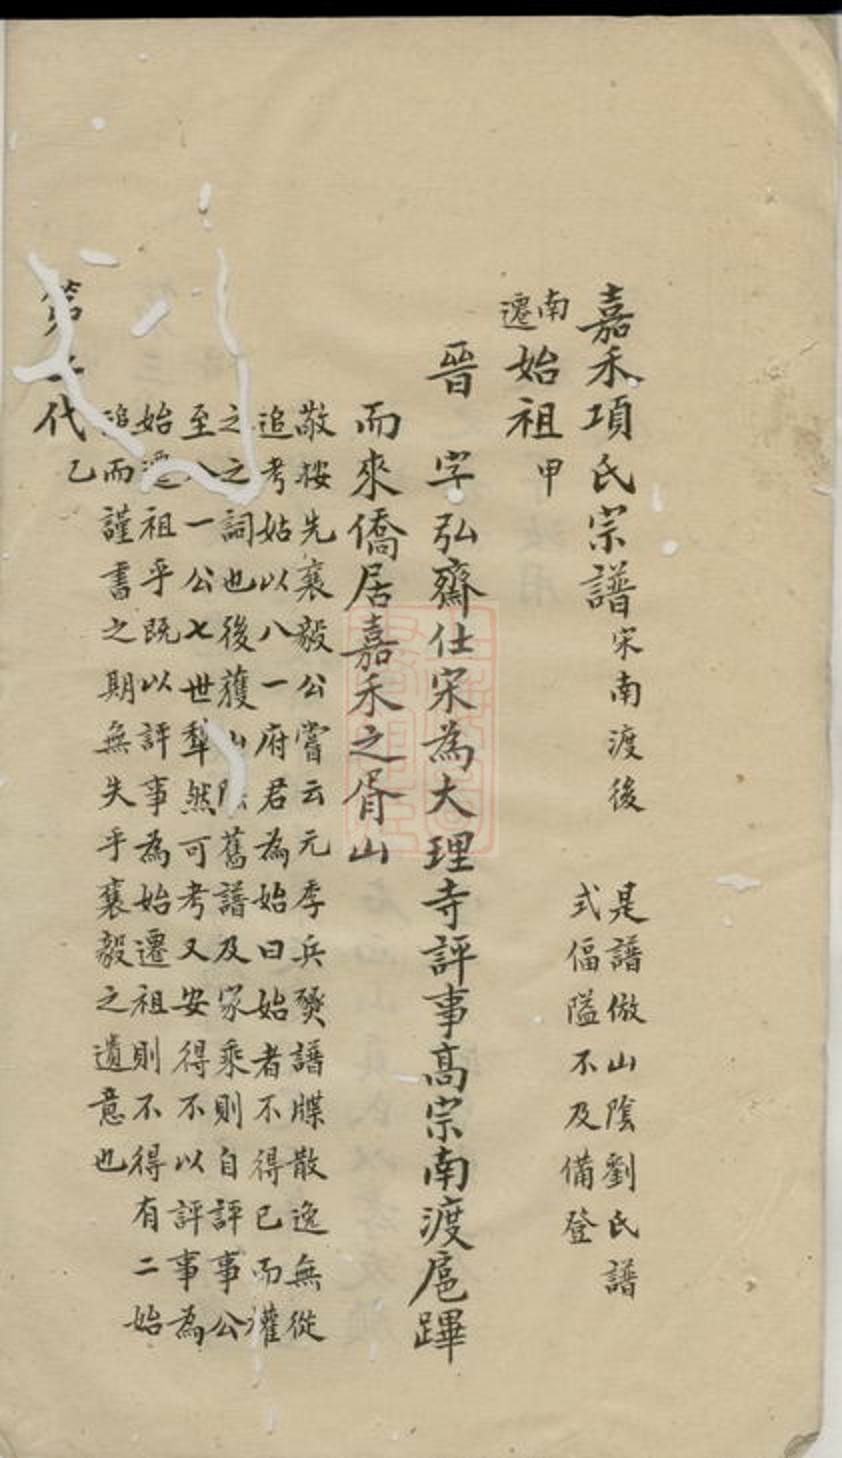 嘉禾項氏宗譜宋南渡後
是譜倣山陰劉氏譜
式偪隘不及備登
南遷始祖甲
晉 字弘齋仕宋為大理寺評事髙宗南渡扈蹕
而來僑居嘉禾之胥山
敬按先襄毅公嘗云元季兵燹譜牒散逸無從
追考姑以八一府君為始曰始者不得已而權
之之詞也後獲山舊譜及家乘則自評事公
至八一公七世犂然可考又安得不以評事為
始遷祖乎既以評事為始遷祖則不得有二始
追而謹書之期無失乎襄毅之遺意也
第代乙